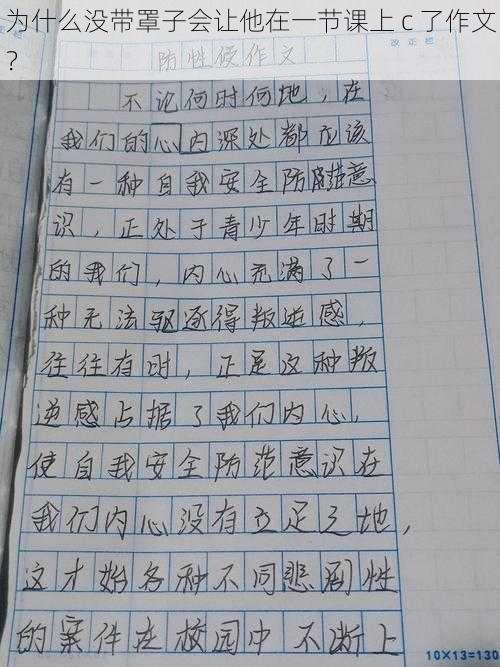 为什么没带罩子会让他在一节课上ｃ了作文
?
改正栏
防性侵作文
不论何时何地，在
我们的心内深处都应该
有一种自我安全防范意
识，正处于青少年时期
的我们，内心充满了一
种无法驱逐得叛逆感，
往往有时，正是这种叛
逆感占据了我们内心，
使自我安全防范意识在
我们内心没有立足之地，
这才始各种不同悲剧性
的案件在校园中不断上
10×13=130